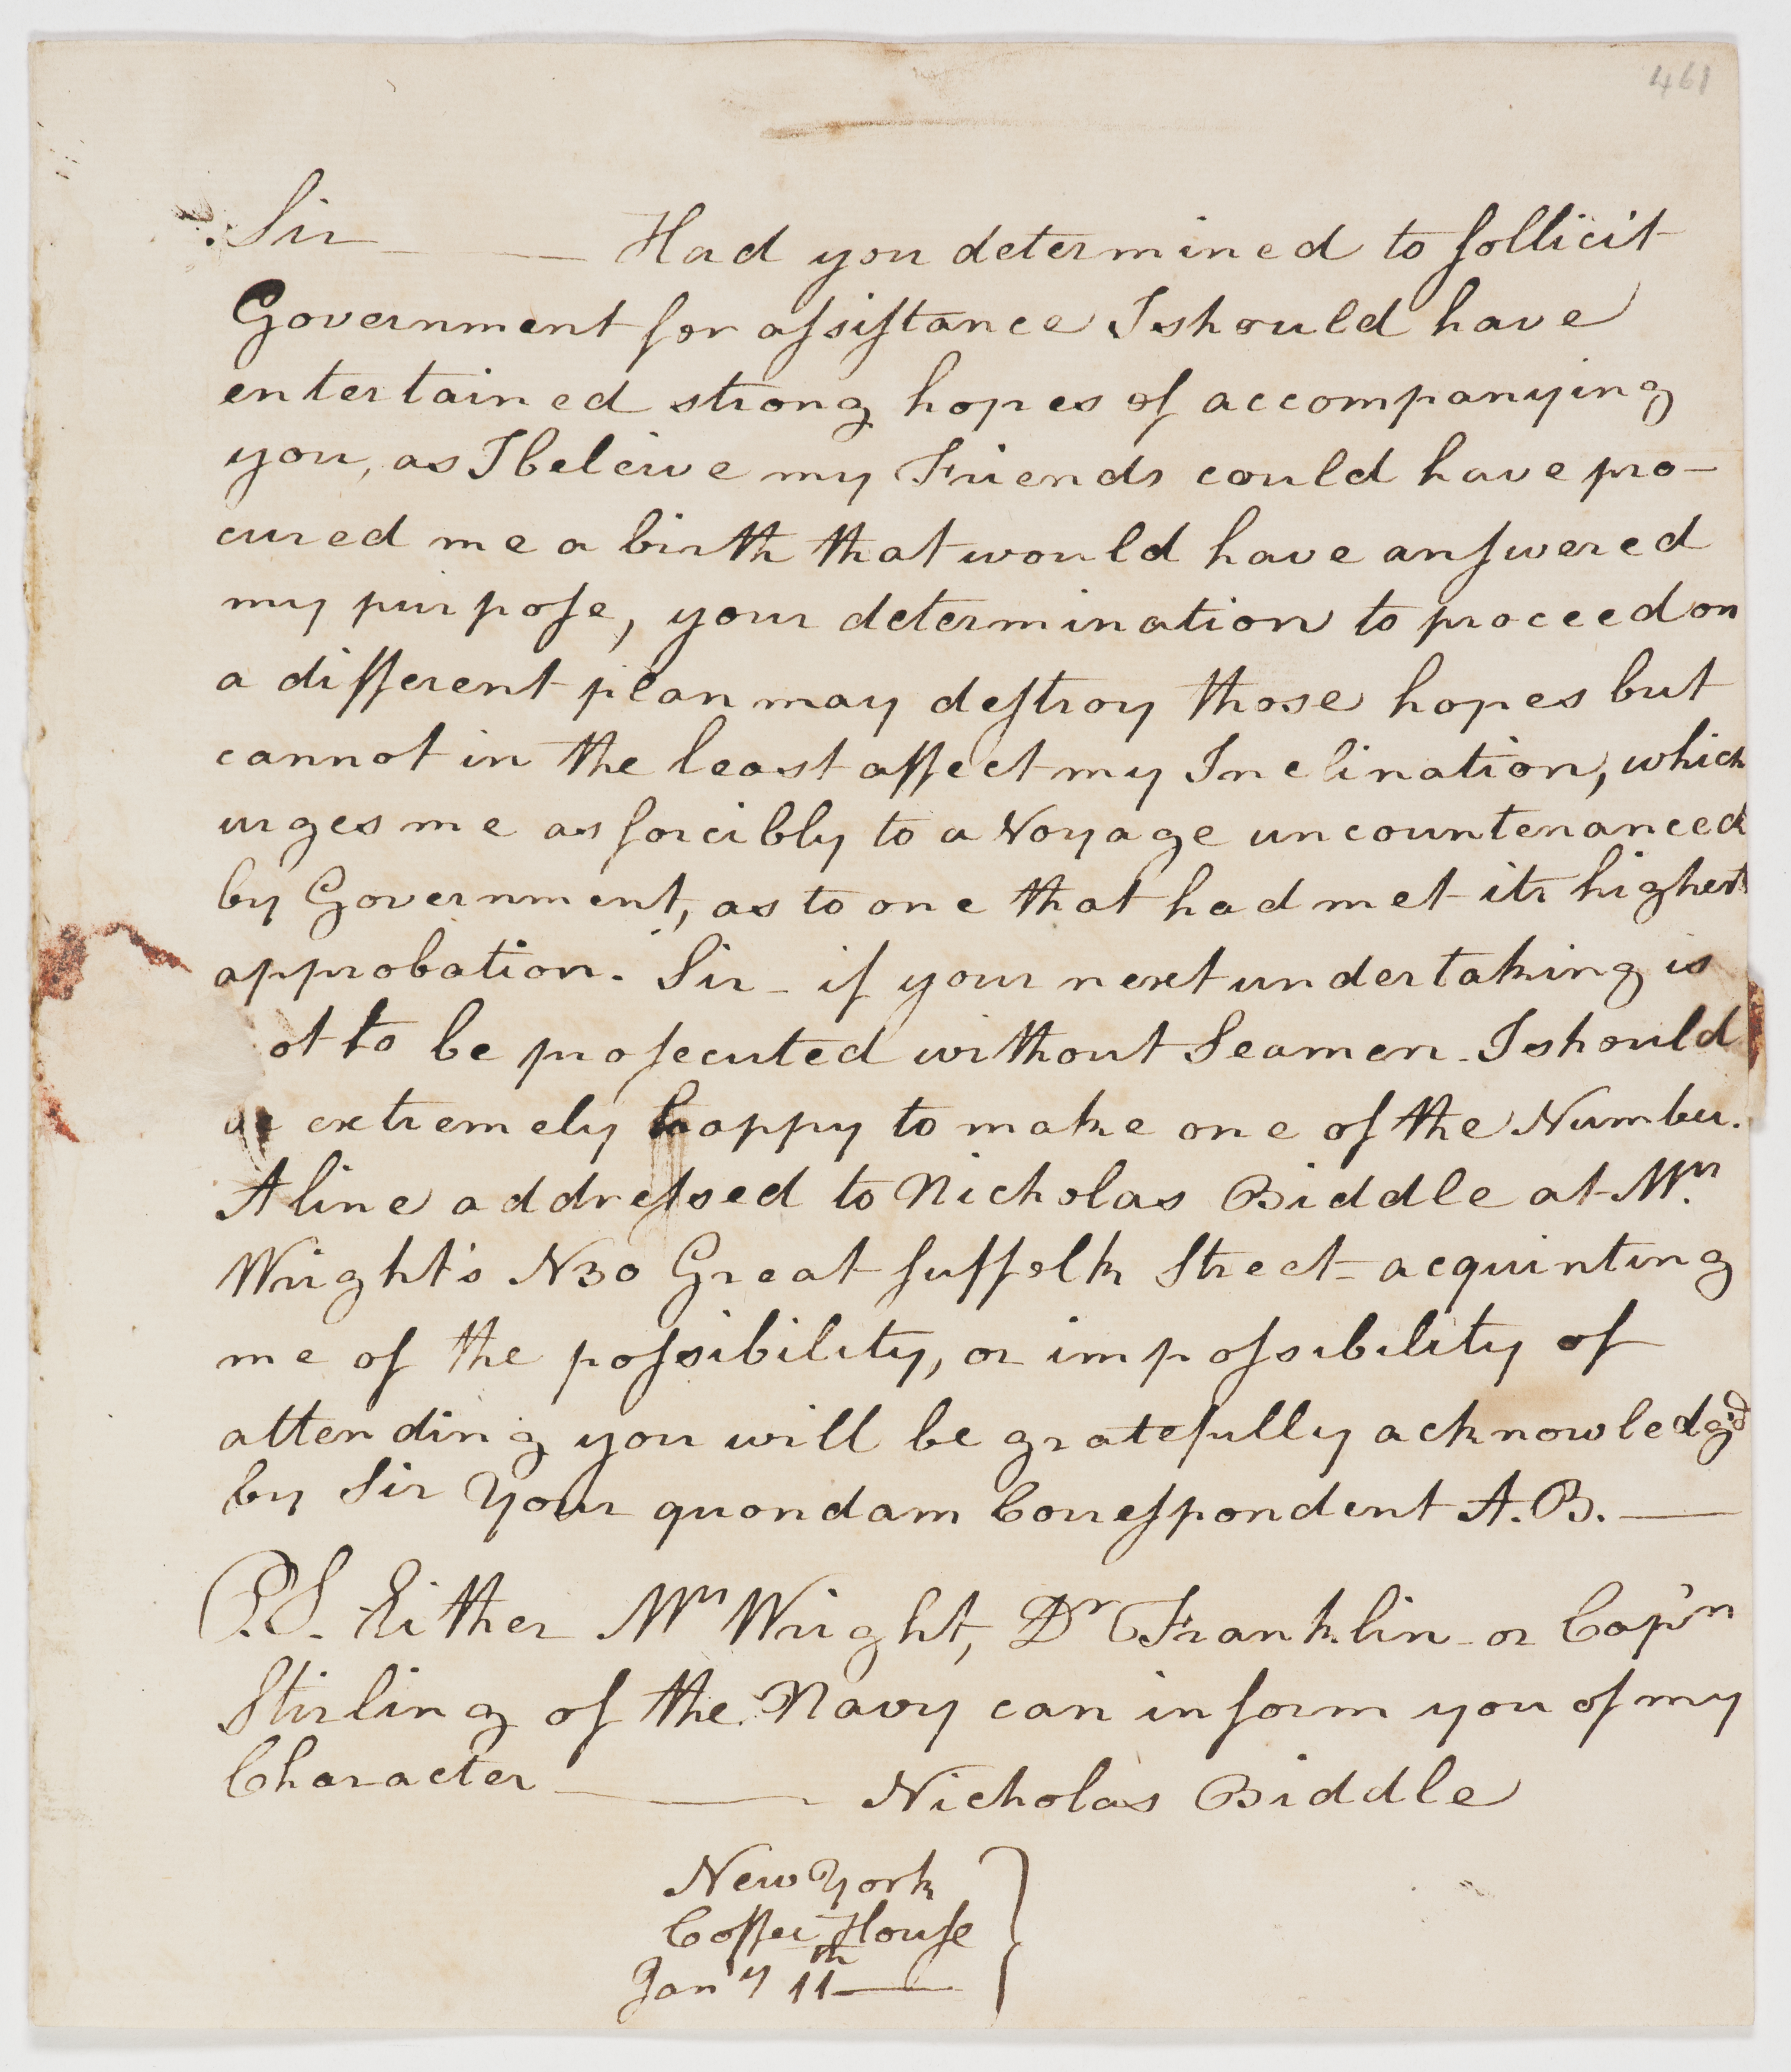 461
Sir —— Had you determined to sollicit
Government for assistance I should have
entertained strong hopes of accompanying
you, as I beleive my Friends could have pro-
cured me a birth that would have answered
my purpose, your determination to proceed on
a different plan may destroy those hopes but
cannot in the least affect my Inclination, which
urges me as forcibly to a Voyage uncountenanced
by Government, as to one that had met its highest
approbation. Sir - if your next undertaking is
ot to be prosecuted without Seamen - I should
extremely happy to make one of the Number.
A line addressed to Nicholas Biddle at Mr.
Wright's N30 Great Suffolk Street - acquinting
me of the possibility, or impossibility of
attending you will be gratefully acknowledg'd
by Sir Your quondam Correspondent A.B. —
P.S. Either Mr Wright, Dr Franklin - or Cap'n
Stirling of the Navy can inform you of my
Character —— Nicholas Biddle
New York
Coffee House
Jan'y 11th —